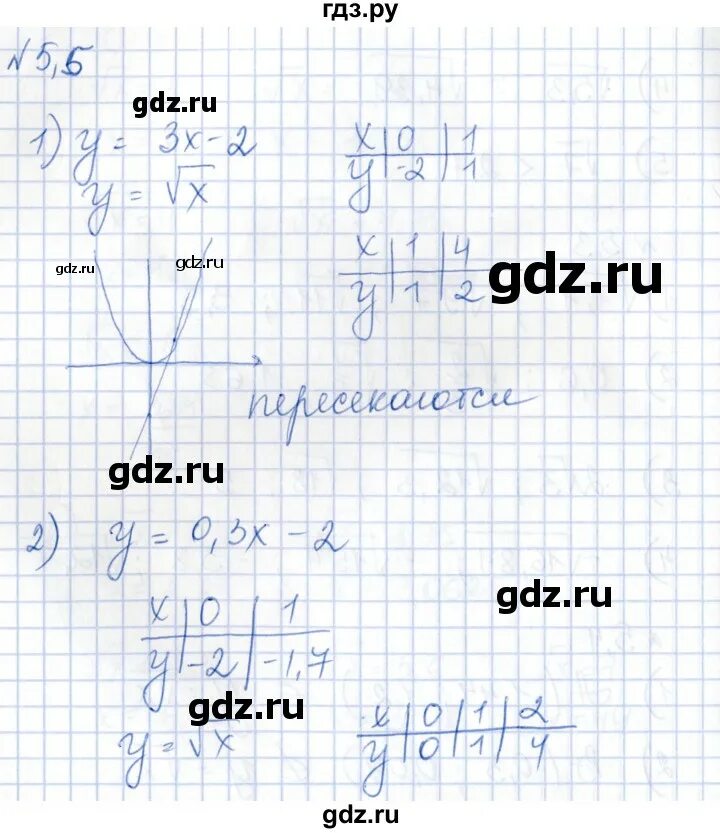 гдз.ру
№5,5
gdz.ru
1) y = 3x-2
x | 0 | 1
y | -2 | 1
y = √x
x | 1 | 4
y | 1 | 2
gdz.ru
gdz.ru
gdz.ru
пересекаются
gdz.ru
2) y = 0,3x - 2
gdz.ru
x | 0 | 1
y | -2 | -1,7
gdz.ru
y = √x
x | 0 | 1 | 2
y | 0 | 1 | 4
gdz.ru